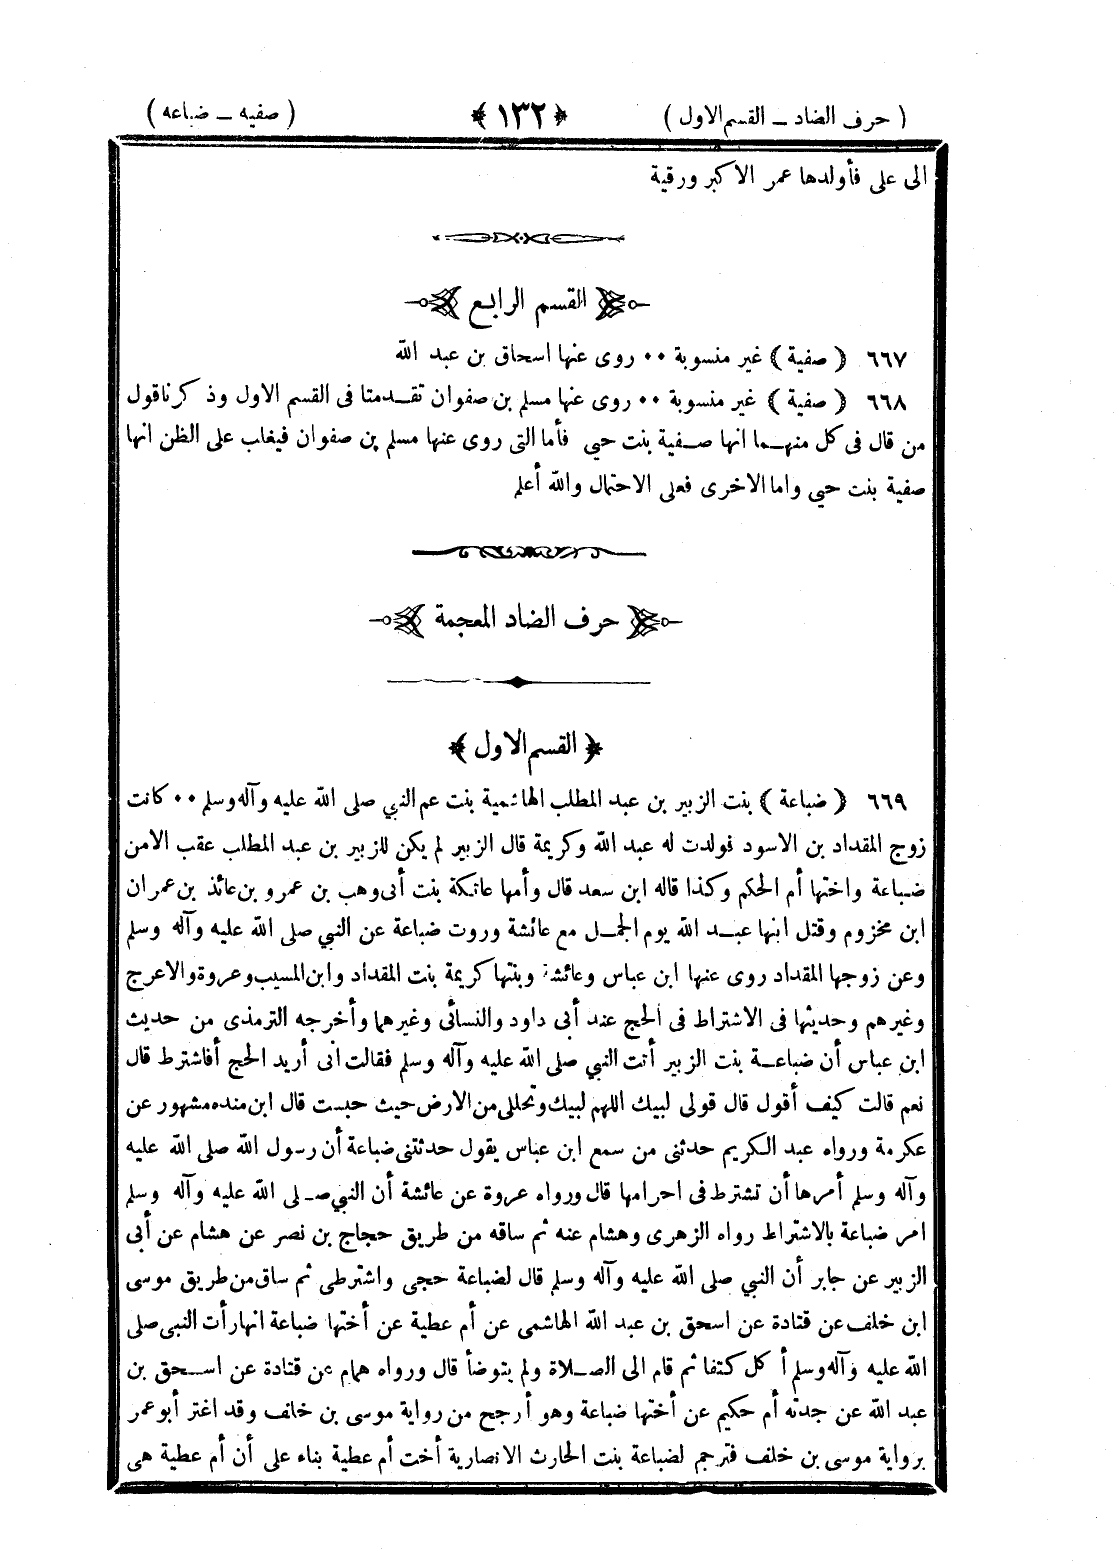 ( حرف الضاد ــ القسم الاول ) ﴿ ١٣٢ ﴾ ( صفيه ــ ضباعه )
الى على فأولدها عمر الاكبر ورقية
القسم الرابع
٦٦٧ ﴿ صفية ﴾ غير منسوبة ٠٠ روى عنها اسحاق بن عبد الله
٦٦٨ ﴿ صفية ﴾ غير منسوبة ٠٠ روى عنها مسلم بن صفوان تقدمتا فى القسم الاول وذكرنا قول
من قال فى كل منهما انها صفية بنت حيي فأما التى روى عنها مسلم بن صفوان فيغاب على الظن انها
صفية بنت حيي واما الاخرى فعلى الاحتمال والله أعلم
حرف الضاد المعجمة
﴿ القسم الاول ﴾
٦٦٩ ﴿ ضباعة ﴾ بنت الزبير بن عبد المطلب الهاشمية بنت عم النبي صلى الله عليه وآله وسلم ٠٠ كانت
زوج المقداد بن الاسود فولدت له عبد الله وكريمة قال الزبير لم يكن للزبير بن عبد المطلب عقب الا من
ضباعة واختها أم الحكم وكذا قاله ابن سعد قال وأمها عاتكة بنت أبى وهب بن عمرو بن عائذ بن عمران
ابن مخزوم وقتل ابنها عبد الله يوم الجمل مع عائشة وروت ضباعة عن النبي صلى الله عليه وآله وسلم
وعن زوجها المقداد روى عنها ابن عباس وعائشة وبنتها كريمة بنت المقداد وابن المسيب وعروة والاعرج
وغيرهم وحديثها فى الاشتراط فى الحج عند أبى داود والنسائى وغيرهما وأخرجه الترمذى من حديث
ابن عباس أن ضباعة بنت الزبير أتت النبي صلى الله عليه وآله وسلم فقالت انى أريد الحج أفاشترط قال
نعم قالت كيف أقول قال قولى لبيك اللهم لبيك وتحللى من الارض حيث حبست قال ابن منده مشهور عن
عكرمة ورواه عبد الكريم حدثنى من سمع ابن عباس يقول حدثتنى ضباعة أن رسول الله صلى الله عليه
وآله وسلم أمرها أن تشترط فى احرامها قال ورواه عروة عن عائشة أن النبي صلى الله عليه وآله وسلم
امر ضباعة بالاشتراط رواه الزهرى وهشام عنه ثم ساقه من طريق حجاج بن نصر عن هشام عن أبى
الزبير عن جابر أن النبي صلى الله عليه وآله وسلم قال لضباعة حجى واشترطى ثم ساق من طريق موسى
ابن خلف عن قتادة عن اسحق بن عبد الله الهاشمى عن أم عطية عن أختها ضباعة انها رأت النبى صلى
الله عليه وآله وسلم أكل كتفا ثم قام الى الصلاة ولم يتوضأ قال ورواه همام عن قتادة عن اسحق بن
عبد الله عن جدته أم حكيم عن أختها ضباعة وهو أرجح من رواية موسى بن خلف وقد اغتر أبو عمر
برواية موسى بن خلف فترجم لضباعة بنت الحارث الانصارية أخت أم عطية بناء على أن أم عطية هى